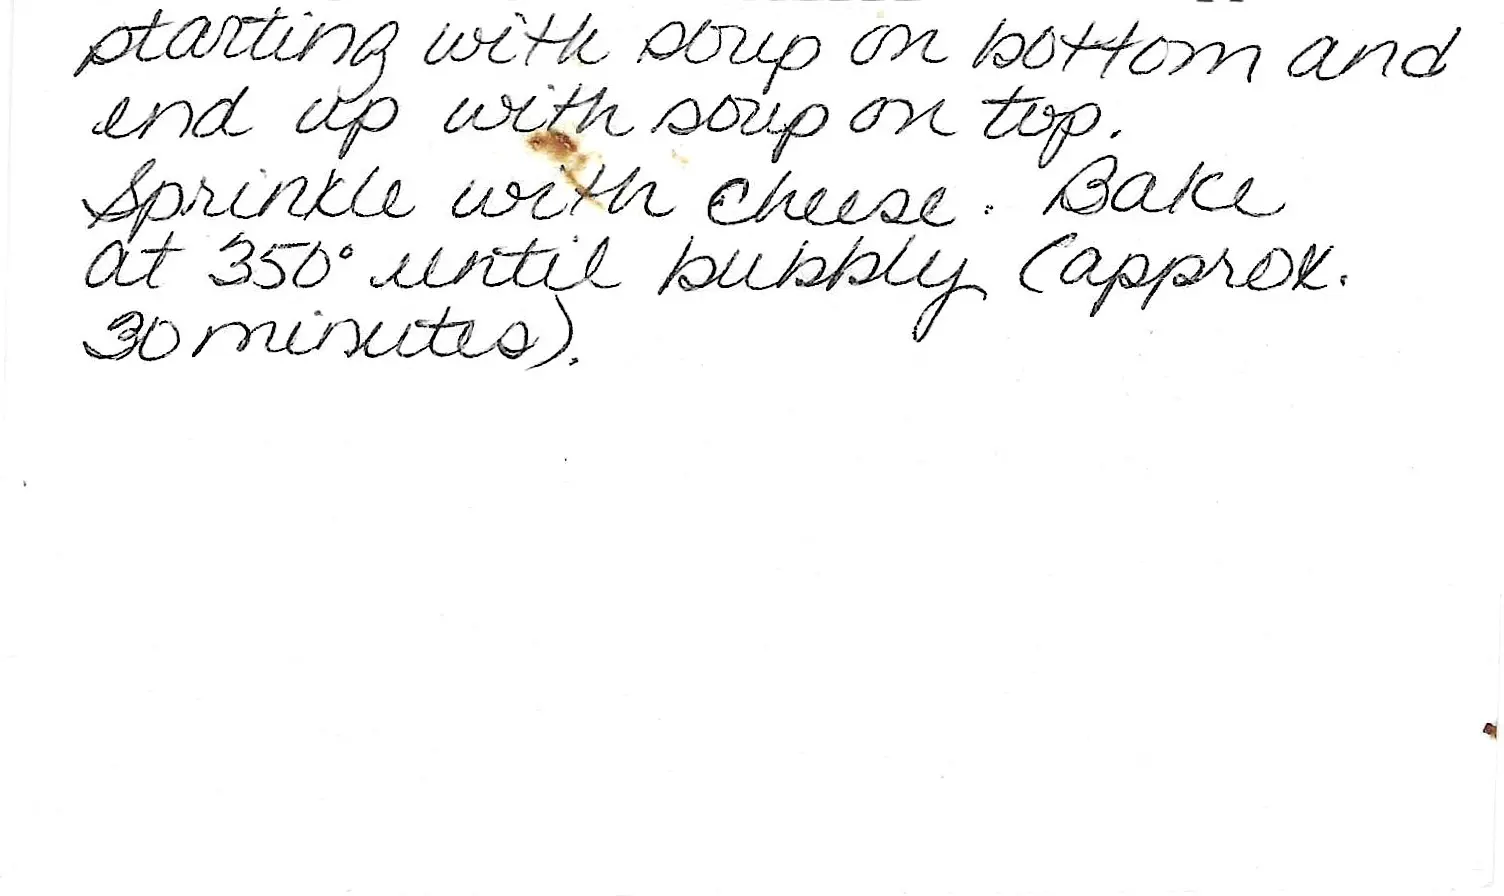 starting with soup on bottom and
end up with soup on top.
Sprinkle with cheese. Bake
at 350° until bubbly (approx.
30 minutes).